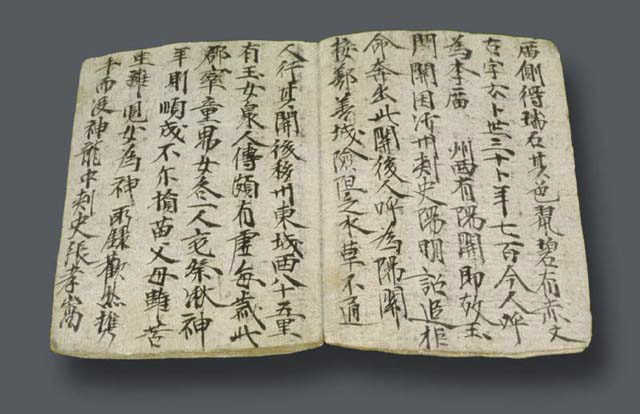 庿側得瑞石其色翠碧有赤文
古字云卜世三十卜年七百今人呼
為李庿　州西有陽關即故玉
門關因沙州刺史陽明詔追拒
命奔出此關後人呼為陽關
接鄯善城險阻乏水草不通
人行其關後移州東城西八十五里
有玉女泉人傳頗有靈每歲此
郡率童男女各一人充祭湫神
年則順成不尔損苗父母雖苦
生離兒女為神所錄歡然携
手而没神龍中刺史張孝嵩